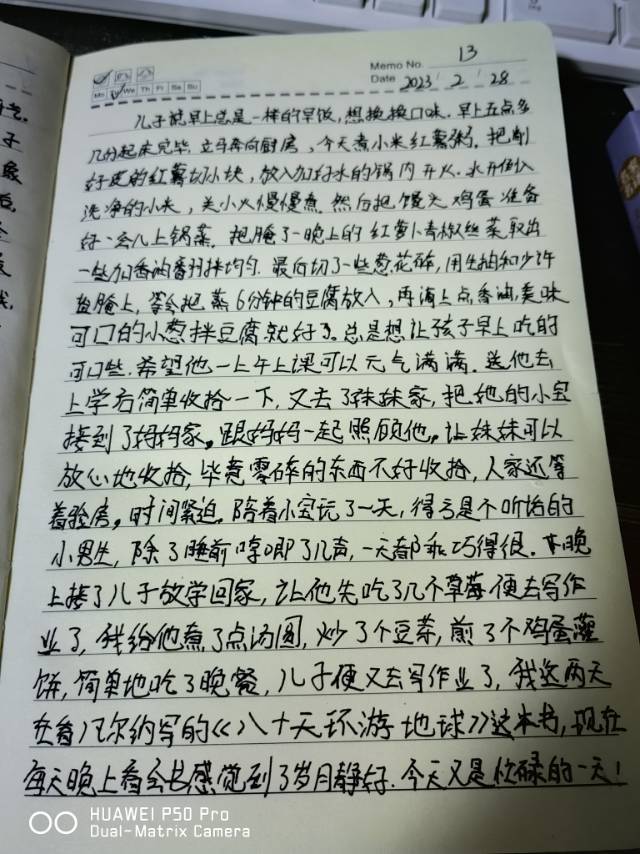 Memo No. 13
Mo Tu We Th Fr Sa Su
Date 2023 / 2 / 28
儿子说早上总是一样的早饭,想换换口味.早上五点多
几分起床完毕,立马奔向厨房,今天煮小米红薯粥.把削
好皮的红薯切小块,放入加好水的锅内开火.水开倒入
洗净的小米,关小火慢慢煮.然后把馒头鸡蛋准备
好一会儿上锅蒸.把腌了一晚上的红萝卜青椒丝菜取出
一些加香油香醋拌均匀.最后切了一些葱花碎,用生抽和少许
盐腌上,等会把蒸6分钟的豆腐放入,再滴上点香油,美味
可口的小葱拌豆腐就好了.总是想让孩子早上吃的
可口些.希望他一上午上课可以元气满满.送他去
上学后简单收拾一下,又去了妹妹家,把她的小宝
接到了妈妈家。跟妈妈一起照顾他。让妹妹可以
放心地收拾,毕竟零碎的东西不好收拾,人家还等
着验房。时间紧迫.陪着小宝玩了一天,得亏是个听话的
小男生,除了睡前哼唧了几声,一天都乖巧得很.下晚
上接了儿子放学回家,让他先吃了几个草莓便去写作
业了,我给他煮了点汤圆,炒了个豆芽,煎了个鸡蛋灌
饼,简单地吃了晚餐,儿子便又去写作业了,我这两天
在看凡尔纳写的《八十天环游地球》这本书,现在
每天晚上看会书感觉到了岁月静好.今天又是忙碌的一天!
HUAWEI P50 Pro
Dual-Matrix Camera